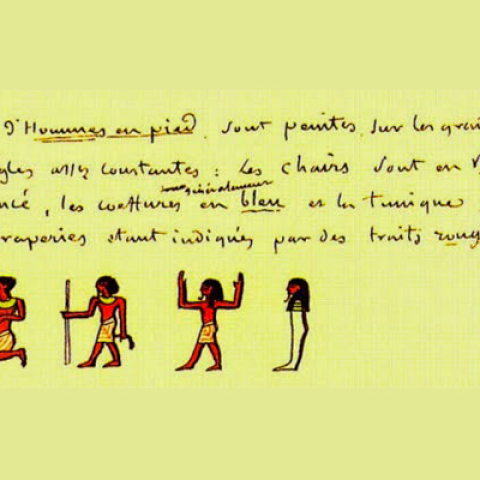 d'Hommes en pied, sont peintes, sur les gra
gles assez constantes : Les chairs sont en r
généralement
ncé, les coeffures en bleu et la tunique
raperies étant indiqués par des traits roug